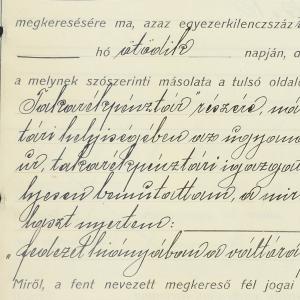 megkeresésére ma, azaz egyezerkilenczszáz
hó ötödik napján, d
a melynek szószerinti másolata a tulsó oldal
Takarékpénztár" részére, ma
tári helyiségében az ugyana
ur, takarékpénztári igazga
lyesen bemutattam, a mir
laszt nyertem:
„fedezet hiányában a váltóra
Miről, a fent nevezett megkereső fél jogai